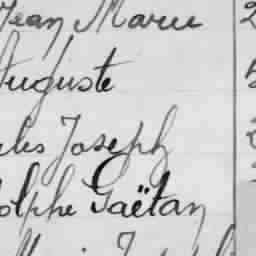 Jean Marie 2
Auguste
les Joseph 2
olphe Gaëtan